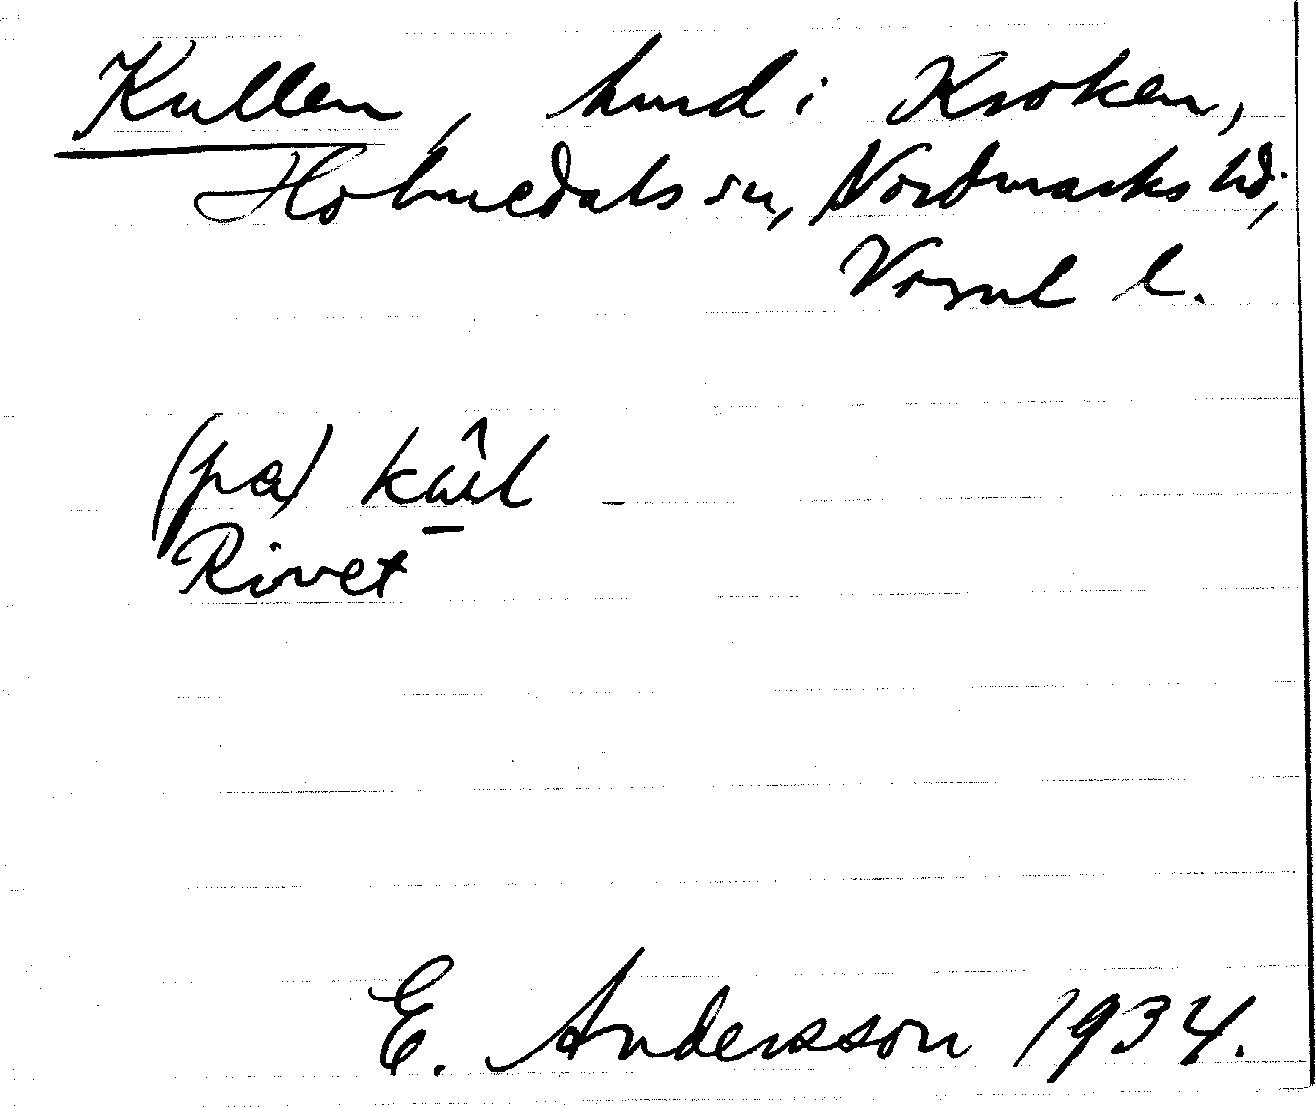 Kullen, hmd i Kroken,
Holmedals sn, Nordmarks hd,
Vrml l.
(pa) kul
Rivet
E. Andersson 1934.